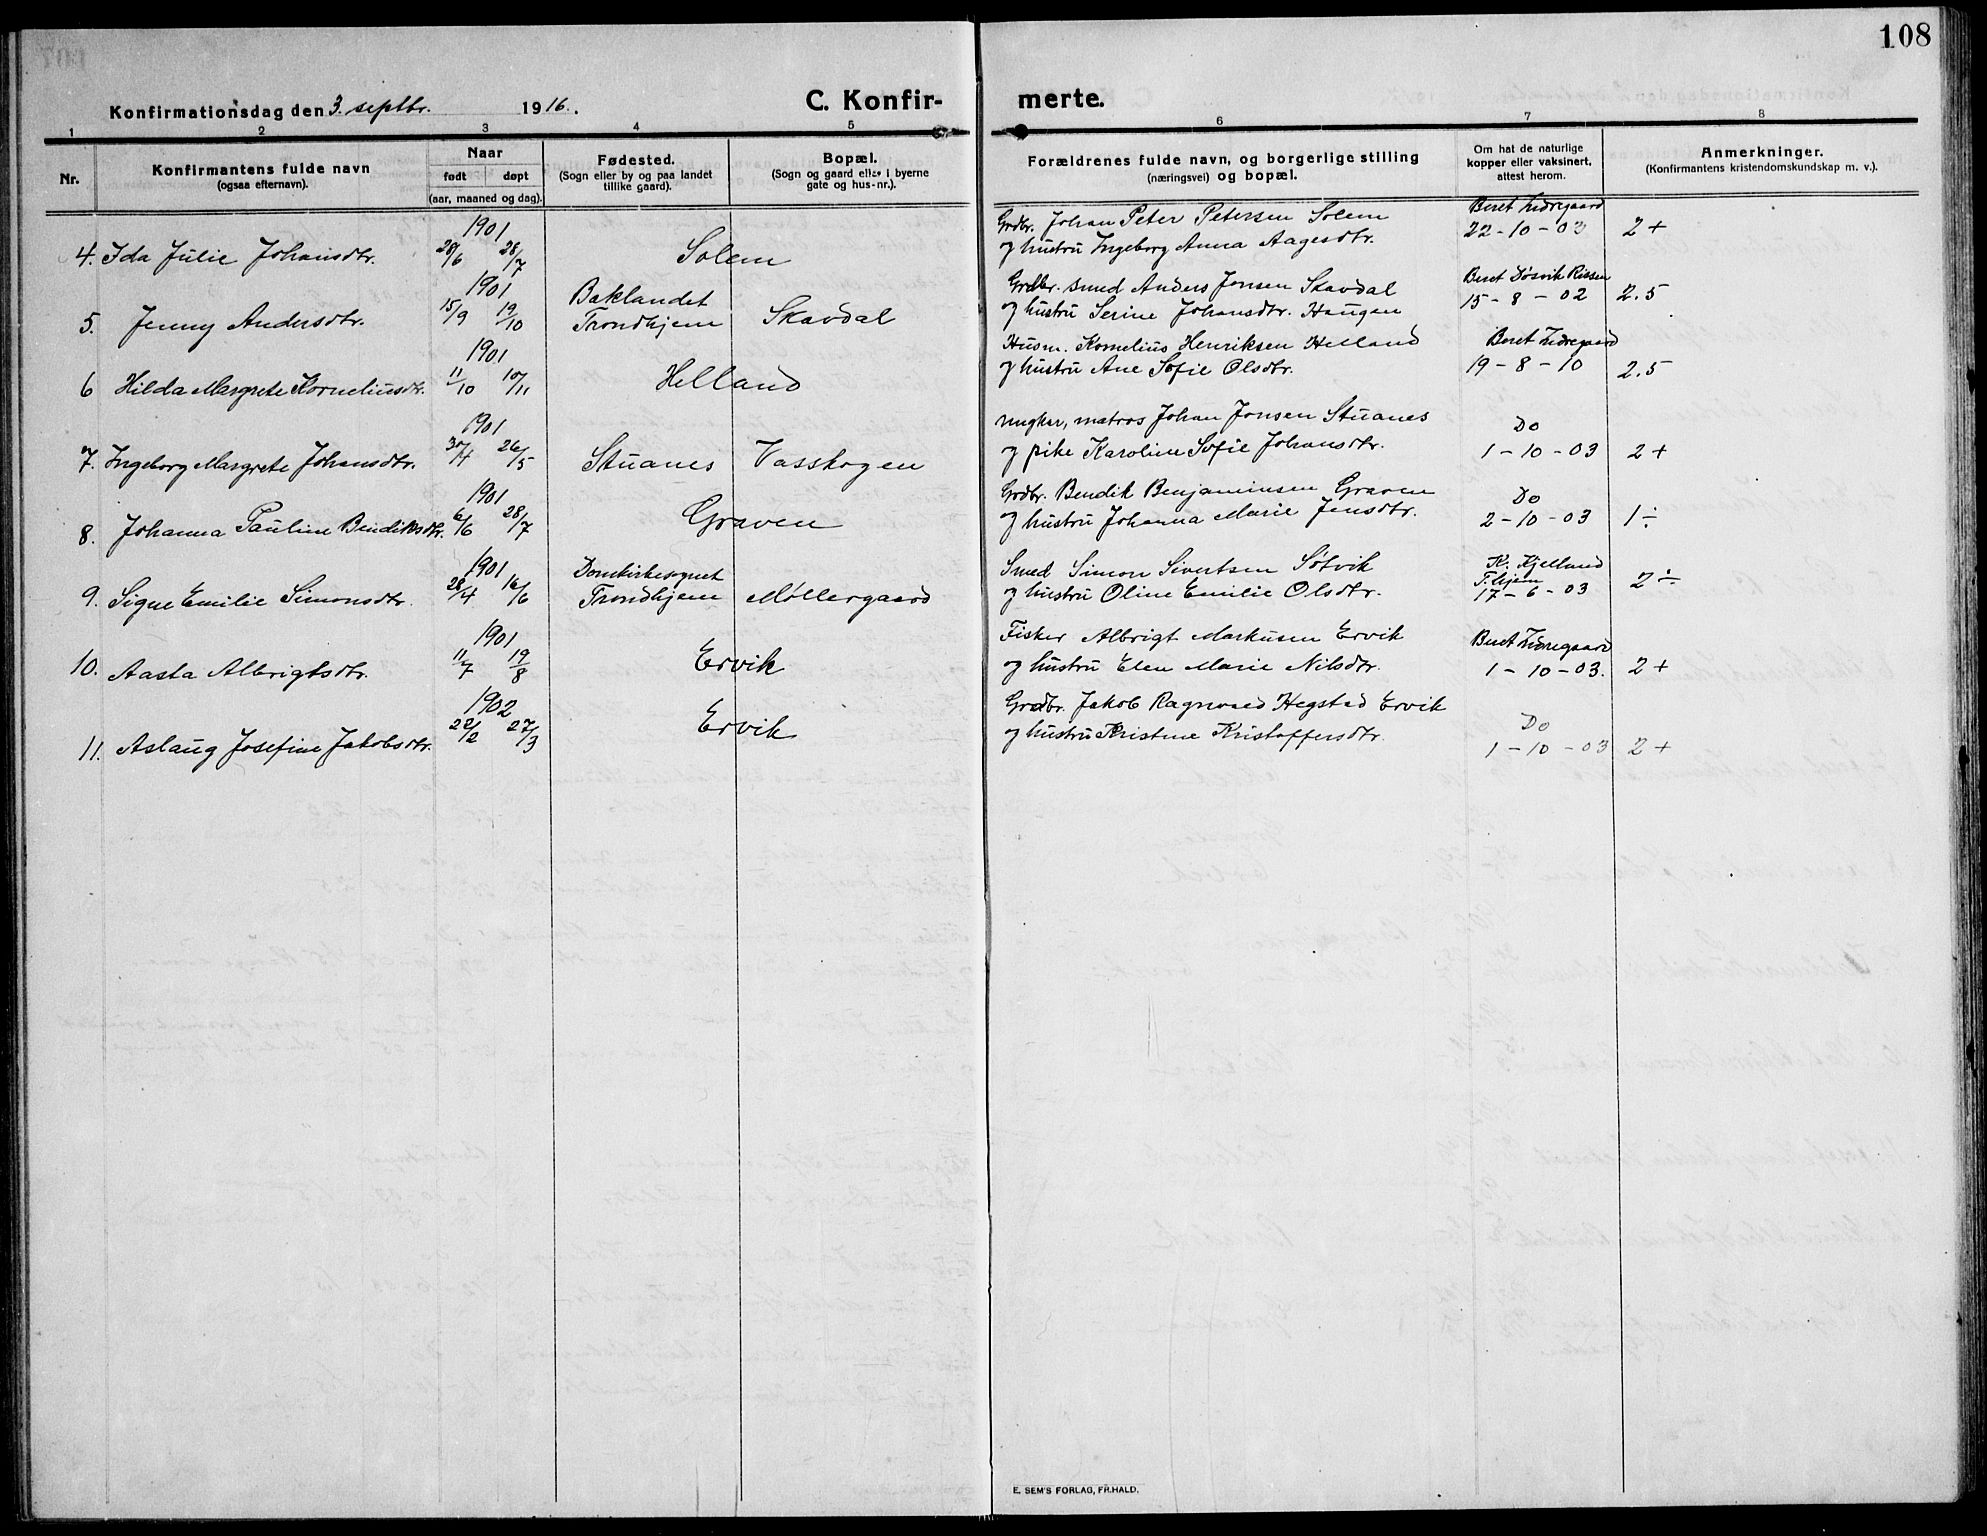 108
Konfirmationsdag den 3. septbr. 1916.
C. Konfirmerte.
1 2 3 4 5 6 7 8
Nr.
Konfirmantens fulde navn
(ogsaa efternavn).
Naar
født døpt
(aar, maaned og dag).
Fødested.
(Sogn eller by og paa landet
tillike gaard).
Bopæl.
(Sogn og gaard eller i byerne
gate og hus-nr.).
Forældrenes fulde navn, og borgerlige stilling
(næringsvei) og bopæl.
Om hat de naturlige
kopper eller vaksinert,
attest herom.
Anmerkninger.
(Konfirmantens kristendomskundskap m. v.).
1901
4. Ida Julie Johansdtr. 28/6 28/7 Solem
Grdbr. Johan Peter Petersen Solem
og hustru Ingeborg Anna Aagesdtr.
Beret Lidregaard
22-10-03 2+
1901
5. Jenny Andersdtr. 15/9 19/10 Baklandet
Trondhjem Skavdal
Grdbr. smed Anders Jonsen Skavdal
og hustru Serine Johansdtr. Haugen
Beret Døsvik Rissen
15-8-02 2.5
1901
6 Hilda Margrete Korneliusdtr. 11/10 10/11 Helland
Husm. Kornelius Henriksen Helland
og hustru Ane Sofie Olsdtr.
Beret Lidregaard
19-8-10 2.5
1901
7. Ingeborg Margrete Johansdtr. 30/4 26/5 Stuanes Vasskogen
ungkar, matros Johan Jonsen Stuanes
og pike Karoline Sofie Johansdtr.
Do
1-10-03 2+
1901
8. Johanna Pauline Bendiksdtr. 6/6 28/7 Graven
Grdbr. Bendik Benjaminsen Graven
og hustru Johanna Marie Jensdtr.
Do
2-10-03 1÷
1901
9. Signe Emilie Simonsdtr. 28/4 16/6 Domkirkesognet
Trondhjem Møllergaard
Smed Simon Sivertsen Søtvik
og hustru Oline Emilie Olsdtr.
K. Kjelland
T.hjem
17-6-03 2÷
1901
10. Aasta Albrigtsdtr. 11/7 19/8 Ervik
Fisker Albrigt Markusen Ervik
og hustru Elen Marie Nilsdtr.
Beret Lidregaard
1-10-03. 2+
1902
11. Aslaug Josefine Jakobsdtr. 22/2 27/3 Ervik
Grdbr. Jakob Ragnvald Hegstad Ervik
og hustru Kristine Kristoffersdtr.
Do
1-10-03 2+
E. SEM'S FORLAG, FR.HALD.